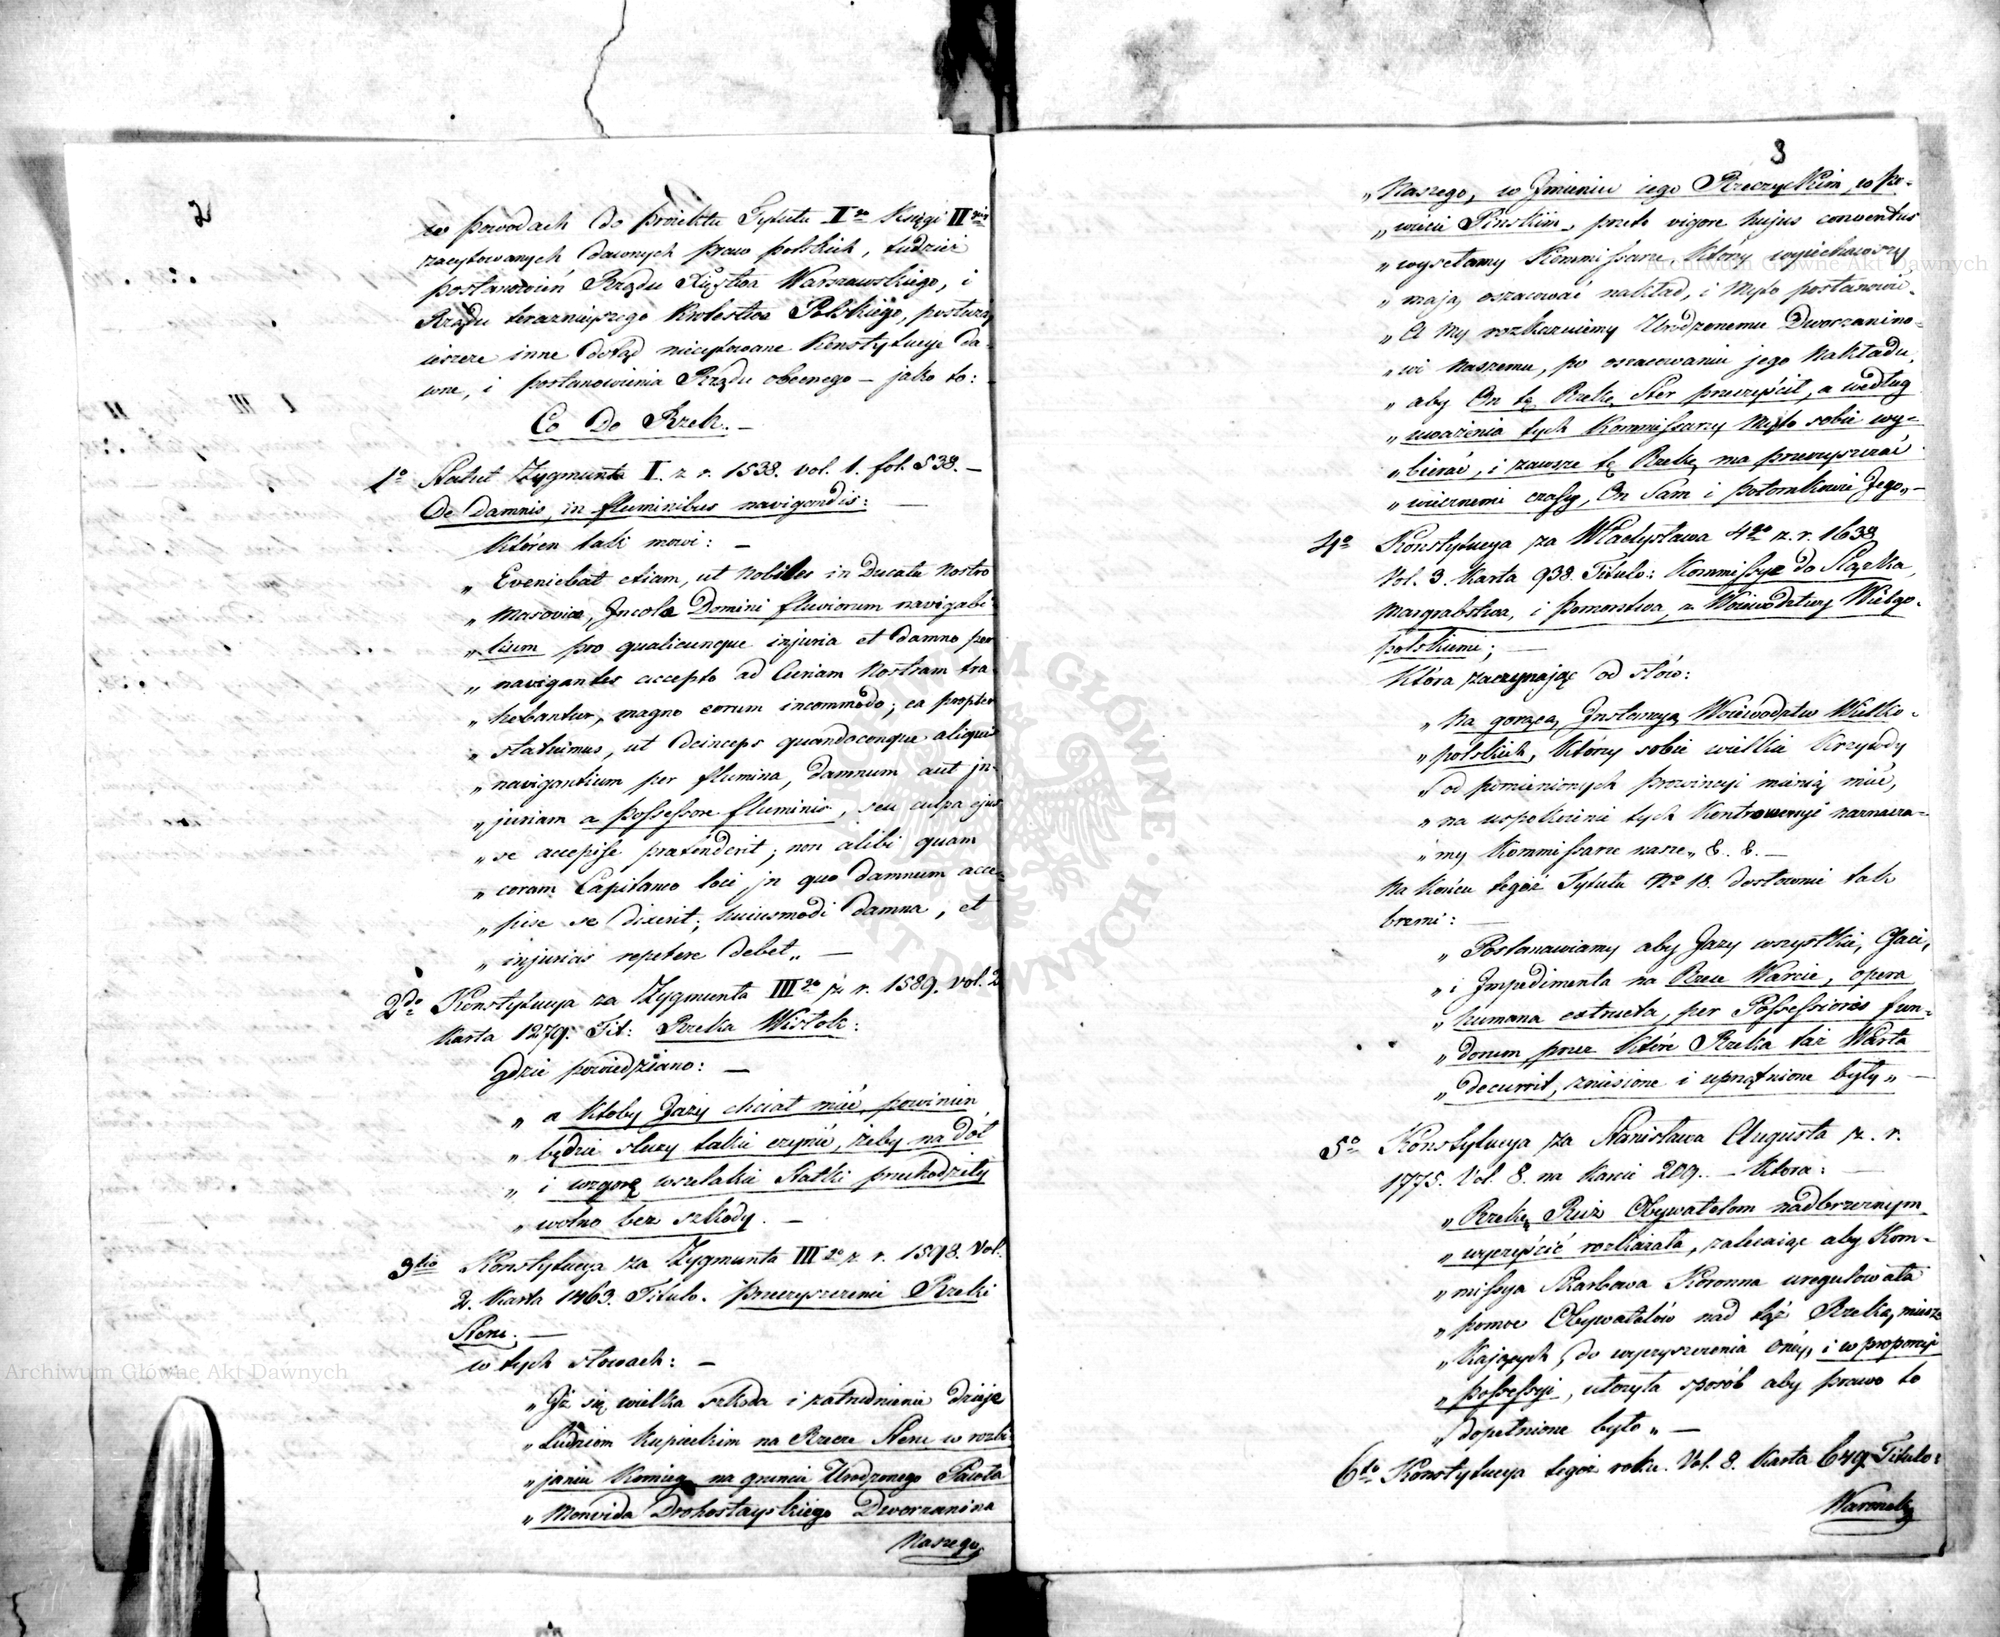 2
w powodach do projektu Tytułu II<sup>go</sup> Księgi II<sup>giej</sup>
zacytowanych dawnych praw polskich, tudzież
postanowień Rządu Xięstwa Warszawskiego, i
Rządu teraznieyszego Krolestwa Polskiego, posłużą
ieszcze inne dotąd niecytowane Konstytucye da-
wne, i postanowienia Rządu obecnego – jako to:
Co Do Rzek. –
1<sup>o</sup> Statut Zygmunta I. z r. 1538. vol. 1. fol. 538. –
De damnis, in fluminibus navigandis: –
Któren tak mowi: –
„ Eveniebat etiam, ut Nobiles in Ducatu Nostro
„ Masoviæ, Incolæ Domini fluviorum navigabi-
„ lium pro qualicunque injuria et damno per
„ navigantes accepto ad Curiam Nostram tra-
„ hebantur, magno eorum incommodo; ea propter
„ statuimus, ut deinceps quandocunque aliquis
„ navigantium per flumina, damnum aut in-
„ juriam a possessore fluminis, seu culpa ejus
„ se accepisse prætenderit; non alibi quam
„ coram Capitaneo loci, in quo damnum acce-
„ pisse se dixerit; huiusmodi damna, et
„ injurias repetere debet „ –
2<sup>do</sup> Konstytucya za Zygmunta III<sup>go</sup> z r. 1589. vol. 2
Karta 1279. Tit: Rzeka Wisłok:
Gdzie powiedziano: –
„ a ktoby Jazy chciał mieć, powinien
„ będzie słuzy takie czynić, żeby na dół
„ i wzgorę wszelakie Statki przechodziły
„ wolno bez szkody. –
3<sup>tio</sup> Konstytucya za Zygmunta III<sup>go</sup> z r. 1598. Vol.
2. Karta 1463. Titulo. Przeczyszczenie Rzeki
Steru. –
w tych słowach: –
„ Iż się wielka szkoda i zatrudnienie dzieje
„ Ludziom kupieckim na Rzece Steru w rozbi-
„ janiu Komięg na gruncie Urodzonego Pawła
„ Monwida Dorohostayskiego Dworzanina
Naszego
3
„ Naszego, w Jmieniu iego Rzeczyckim, w Po-
„ wiecie Pinskim, przeto vigore hujus conventus
„ wysełamy Kommissarze, którzy wyjechawszy
„ maią oszacować nakład, i Myto postanowić.
„ A My rozkazuiemy Urodzonemu Dworzanino-
„ wi Naszemu, po oszacowaniu jego nakładu,
„ aby On tę Rzekę Ster przeczyścił, a według
„ uważenia tych Kommissarzy Myto sobie wy-
„ bierać, i zawsze tę Rzekę ma przeczyszczać
„ wiecznemi czasy, On Sam i potomkowie Jego „ –
4<sup>o</sup> Konstytucya za Władysława 4<sup>go</sup> z. r. 1638
Vol. 3. Karta 938. Titulo: Kommissye do Slązka,
Margrabstwa, i Pomorstwa, z Woiewodztwy Wielgo-
polskiemi; –
która zaczynając od słów:
„ Na gorącą Instancyą Woiewodztw Wielko-
„ polskich, którzy sobie wielkie krzywdy
„ od pomienionych prowincyi mienią mieć,
„ na uspokoienie tych Kontrowersyi naznacza-
„ my Kommissarze nasze „ &. &. –
Na końcu tegoż Tytułu N<sup>o</sup> 18. dosłownie tak
brzmi: –
„ Postanawiamy aby Jazy wszystkie, Gaci,
„ i Impedimenta na Rzece Warcie, opera
„ humana extructa, per Possessiores fun-
„ dorum, przez które Rzeka taż Warta
„ decurrit, zniesione i uprzątnione były „ –
5<sup>o</sup> Konstytucya za Stanisława Augusta z. r.
1775. Vol. 8. na karcie 209. – która: –
„ Rzekę Ruż Obywatelom nadbrzeznym
„ wyczyścić rozkazała, zalecaiąc aby Kom-
„ missya Skarbowa Koronna uregulowała
„ pomoc Obywatelów nad tąż Rzeką miesz-
„ kających, do wyczyszczenia onéy, i w proporcyi
„ possessyi, ułożyła sposób aby prawo to
„ dopełnione było „ –
6<sup>to</sup> Konstytucya tegoż roku. Vol. 8. Karta 649. Titulo:
Warunek
Archiwum Główne Akt Dawnych
Archiwum Główne Akt Dawnych